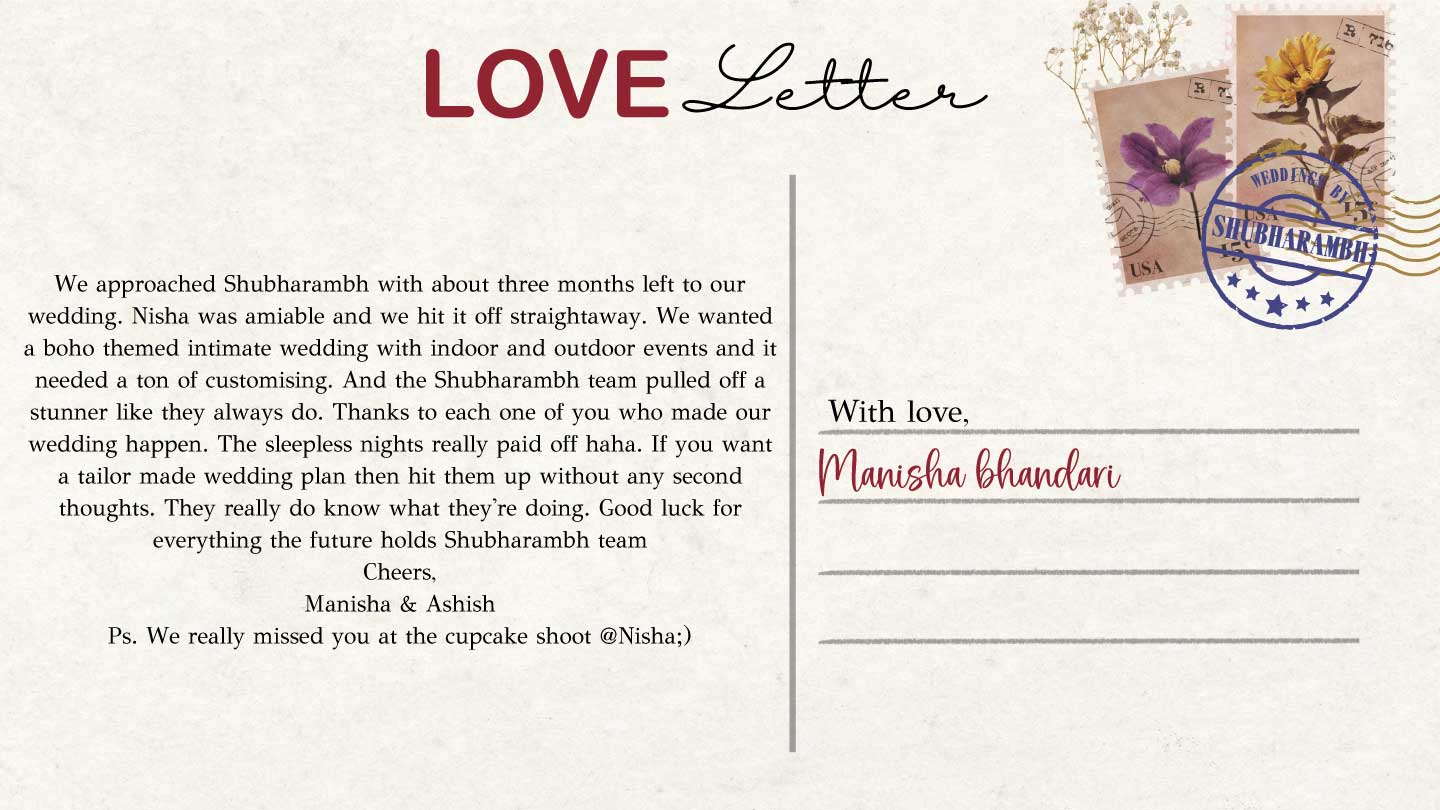 LOVE Letter
R 716
R 71
WEDDINGS BY
SHUBHARAMBH
USA
15c
USA
15c
We approached Shubharambh with about three months left to our
wedding. Nisha was amiable and we hit it off straightaway. We wanted
a boho themed intimate wedding with indoor and outdoor events and it
needed a ton of customising. And the Shubharambh team pulled off a
stunner like they always do. Thanks to each one of you who made our
wedding happen. The sleepless nights really paid off haha. If you want
a tailor made wedding plan then hit them up without any second
thoughts. They really do know what they’re doing. Good luck for
everything the future holds Shubharambh team
Cheers,
Manisha & Ashish
Ps. We really missed you at the cupcake shoot @Nisha;)
With love,
Manisha bhandari